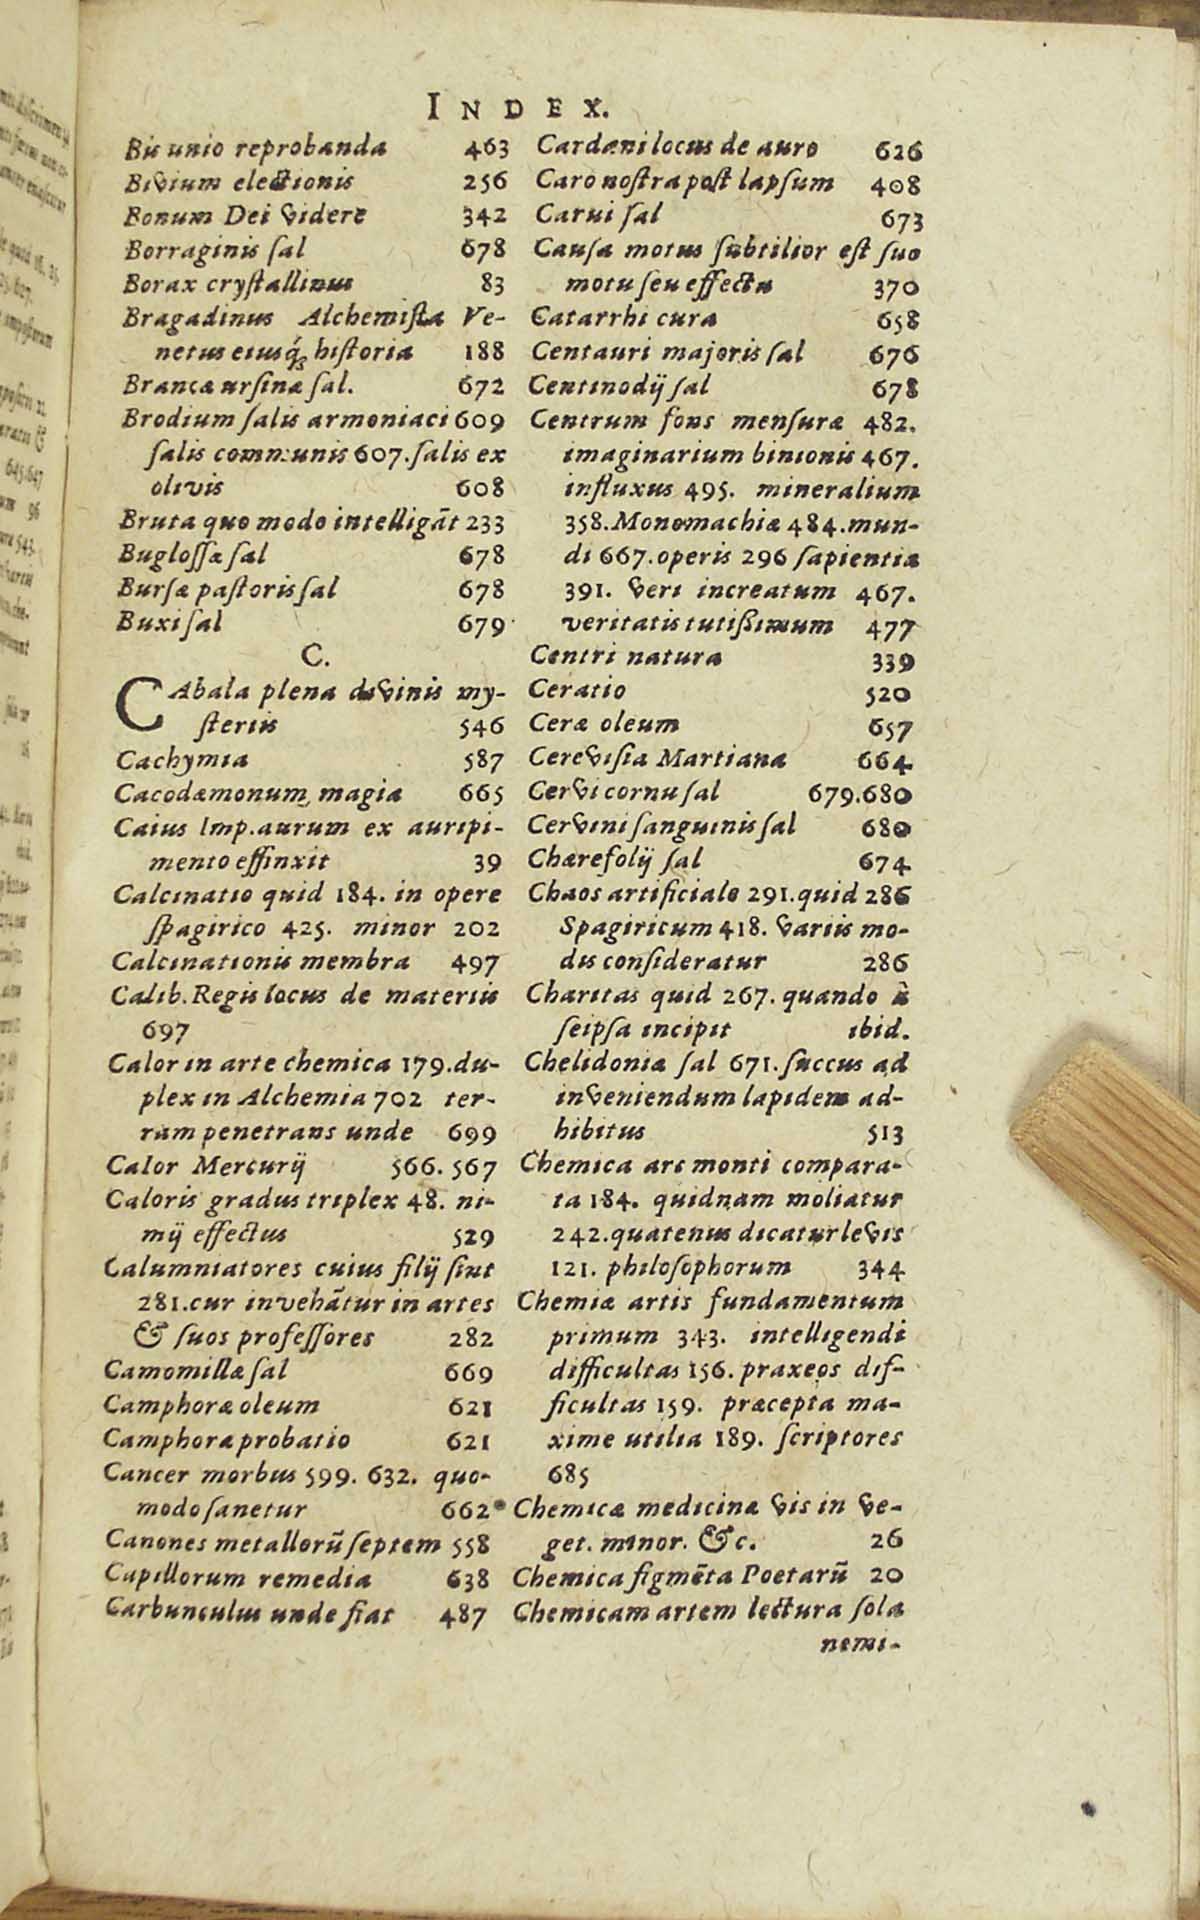 INDEX.
Bis unio reprobanda 463
Bivium electionis 256
Bonum Dei videre 342
Borraginis ſal 678
Borax cryſtallinus 83
Bragadinus Alchemiſta Ve-
netus eiusq́; hiſtoria 188
Brancæ urſinæ ſal. 672
Brodium ſalis armoniaci 609
ſalis communis 607. ſalis ex
olivis 608
Bruta quo modo intelligãt 233
Bugloſſæ ſal 678
Burſæ paſtoris ſal 678
Buxi ſal 679
C.
CAbala plena divinis my-
ſteriis 546
Cachymia 587
Cacodæmonum magia 665
Caius Imp. aurum ex auripi-
mento effinxit 39
Calcinatio quid 184. in opere
ſpagirico 425. minor 202
Calcinationis membra 497
Calib. Regis locus de materiis
697
Calor in arte chemica 179. du-
plex in Alchemia 702 ter-
ram penetrans unde 699
Calor Mercurij 566. 567
Caloris gradus triplex 48. ni-
mij effectus 529
Calumniatores cuius filij ſint
281. cur invehãtur in artes
& ſuos profeſſores 282
Camomillæ ſal 669
Camphoræ oleum 621
Camphoræ probatio 621
Cancer morbus 599. 632. quo-
modo ſanetur 662
Canones metallorũ ſeptem 558
Capillorum remedia 638
Carbunculus unde fiat 487
Cardani locus de auro 626
Caro noſtra poſt lapſum 408
Carui ſal 673
Cauſa motus ſubtilior eſt ſuo
motu ſeu effectu 370
Catarrhi cura 658
Centauri majoris ſal 676
Centinodij ſal 678
Centrum fons menſuræ 482.
imaginarium binionis 467.
influxus 495. mineralium
358. Monomachiæ 484. mun-
di 667. operis 296 ſapientiæ
391. veri increatum 467.
veritatis tutiſsimum 477
Centri natura 339
Ceratio 520
Ceræ oleum 657
Cereviſia Martiana 664
Cervi cornu ſal 679. 680
Cervini ſanguinis ſal 680
Chærefolij ſal 674
Chaos artificiale 291. quid 286
Spagiricum 418. variis mo-
dis conſideratur 286
Charitas quid 267. quando à
ſeipſa incipit ibid.
Chelidoniæ ſal 671. ſuccus ad
inveniendum lapidem ad-
hibitus 513
Chemica ars monti compara-
ta 184. quidnam moliatur
242. quatenus dicatur levis
121. philoſophorum 344
Chemiæ artis fundamentum
primum 343. intelligendi
difficultas 156. praxeos dif-
ficultas 159. præcepta ma-
xime utilia 189. ſcriptores
685
Chemicæ medicinæ vis in ve-
get. minor. &c. 26
Chemica figmẽta Poetarũ 20
Chemicam artem lectura ſola
nemi-